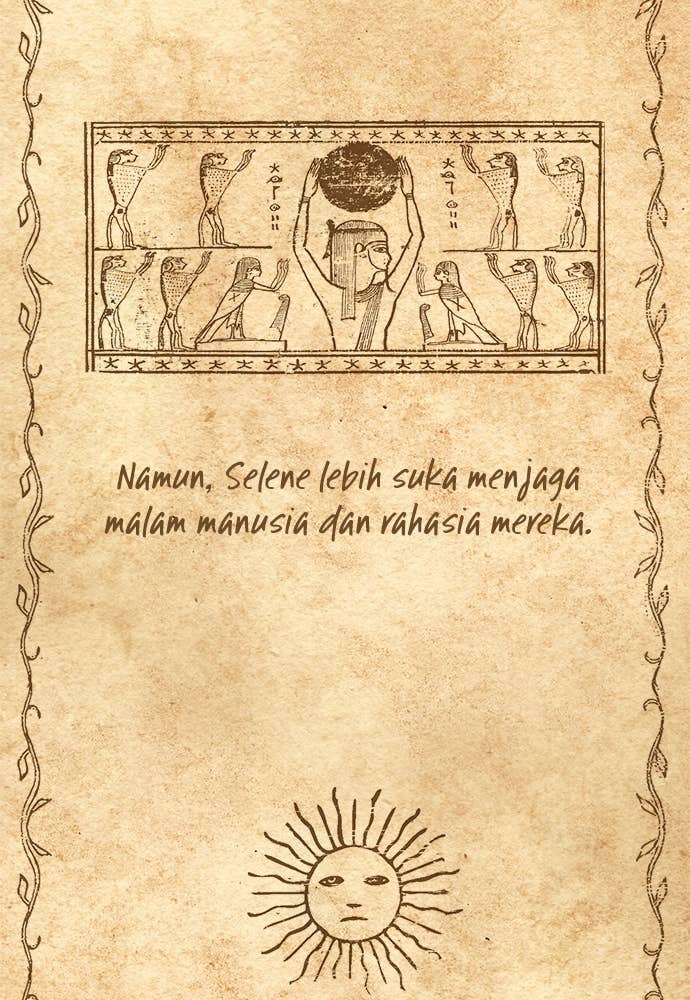 Namun, Selene lebih suka menjaga
malam manusia dan rahasia mereka.